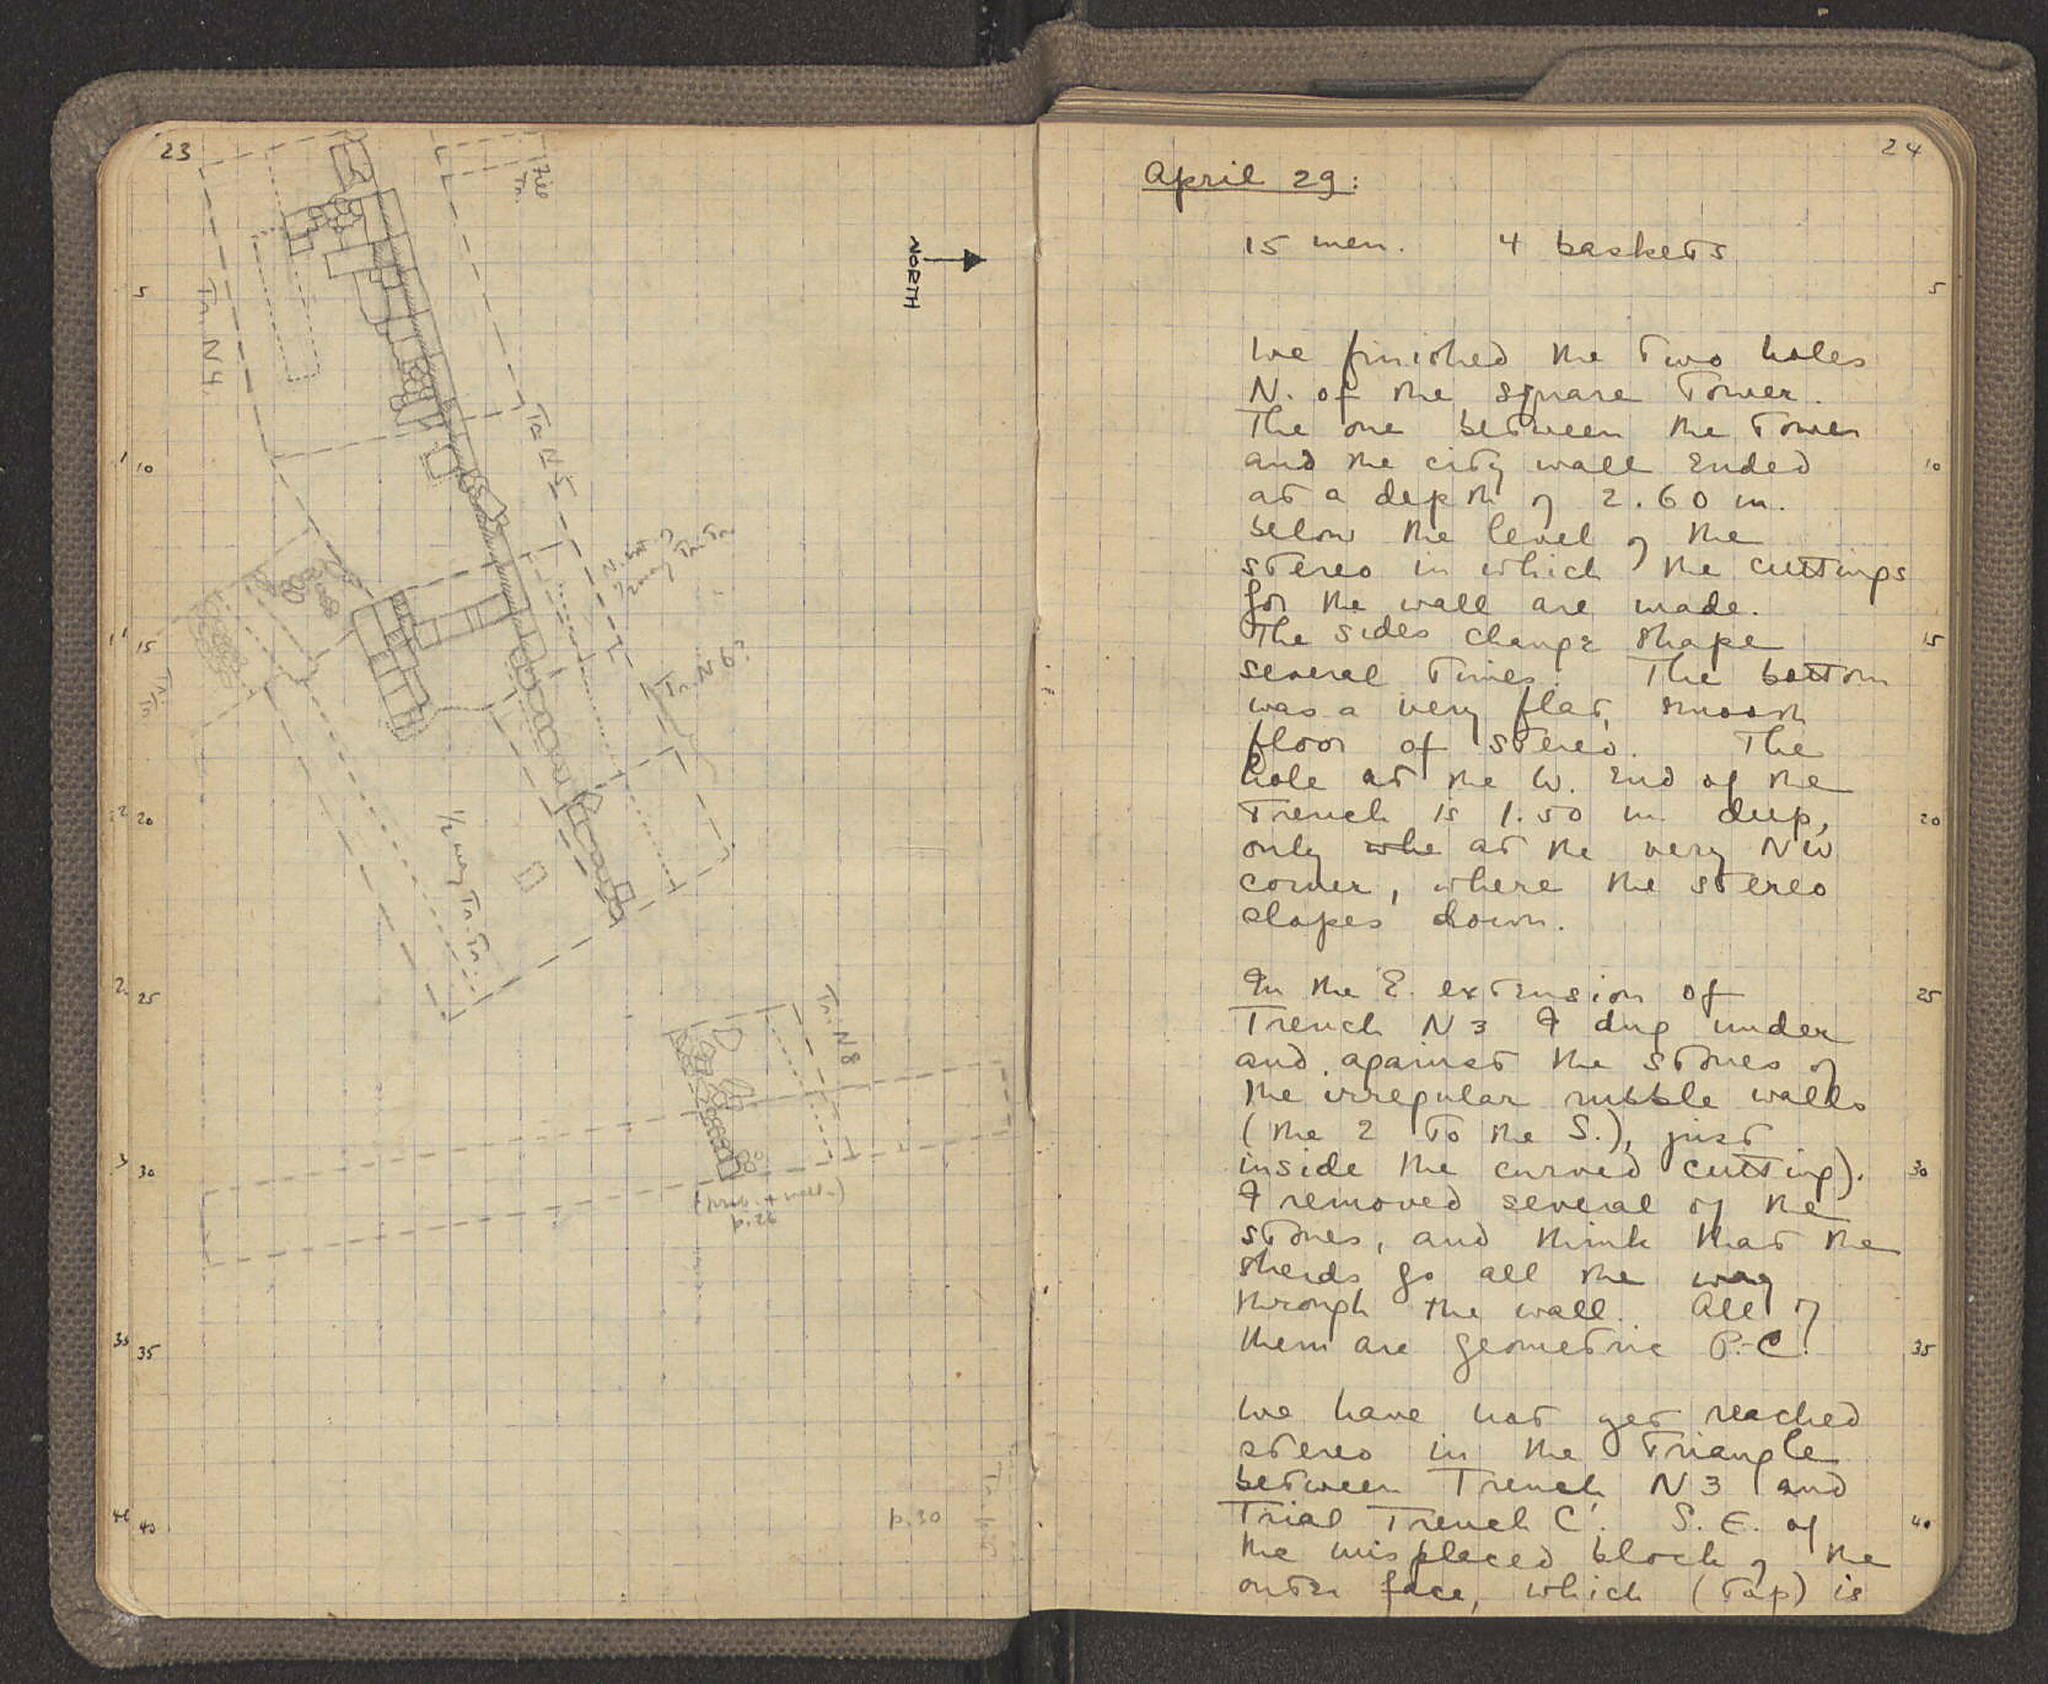 23
Fill
Tr.
NORTH
Tr. N4.
Tr. N5
Tr. N6?
1/2 way Tr. Tr.
Tr. N8
p. 26
p. 30
5
10
15
20
25
30
35
40
24
April 29:
15 men. 4 baskets
5
We finished the two holes
N. of the square tower.
The one between the tower
and the city wall ended
10
at a depth of 2.60 m.
below the level of the
stereo in which the cuttings
for the wall are made.
The sides change shape
15
several times. The bottom
was a very flat, smooth
floor of stereo. The
hole at the W. end of the
trench is 1.50 m deep,
20
only whe at the very NW
corner, where the stereo
slopes down.
In the E. extension of
25
Trench N3 I dug under
and against the stones of
the irregular rubble walls
(the 2 to the S.), just
inside the curved cutting).
30
I removed several of the
stones, and think that the
sherds go all the way
through the wall. All of
them are geometric P.-C.
35
We have not yet reached
stereo in the triangle
between Trench N3 and
Trial Trench C'. S.E. of
40
the misplaced block of the
outer face, which (top) is